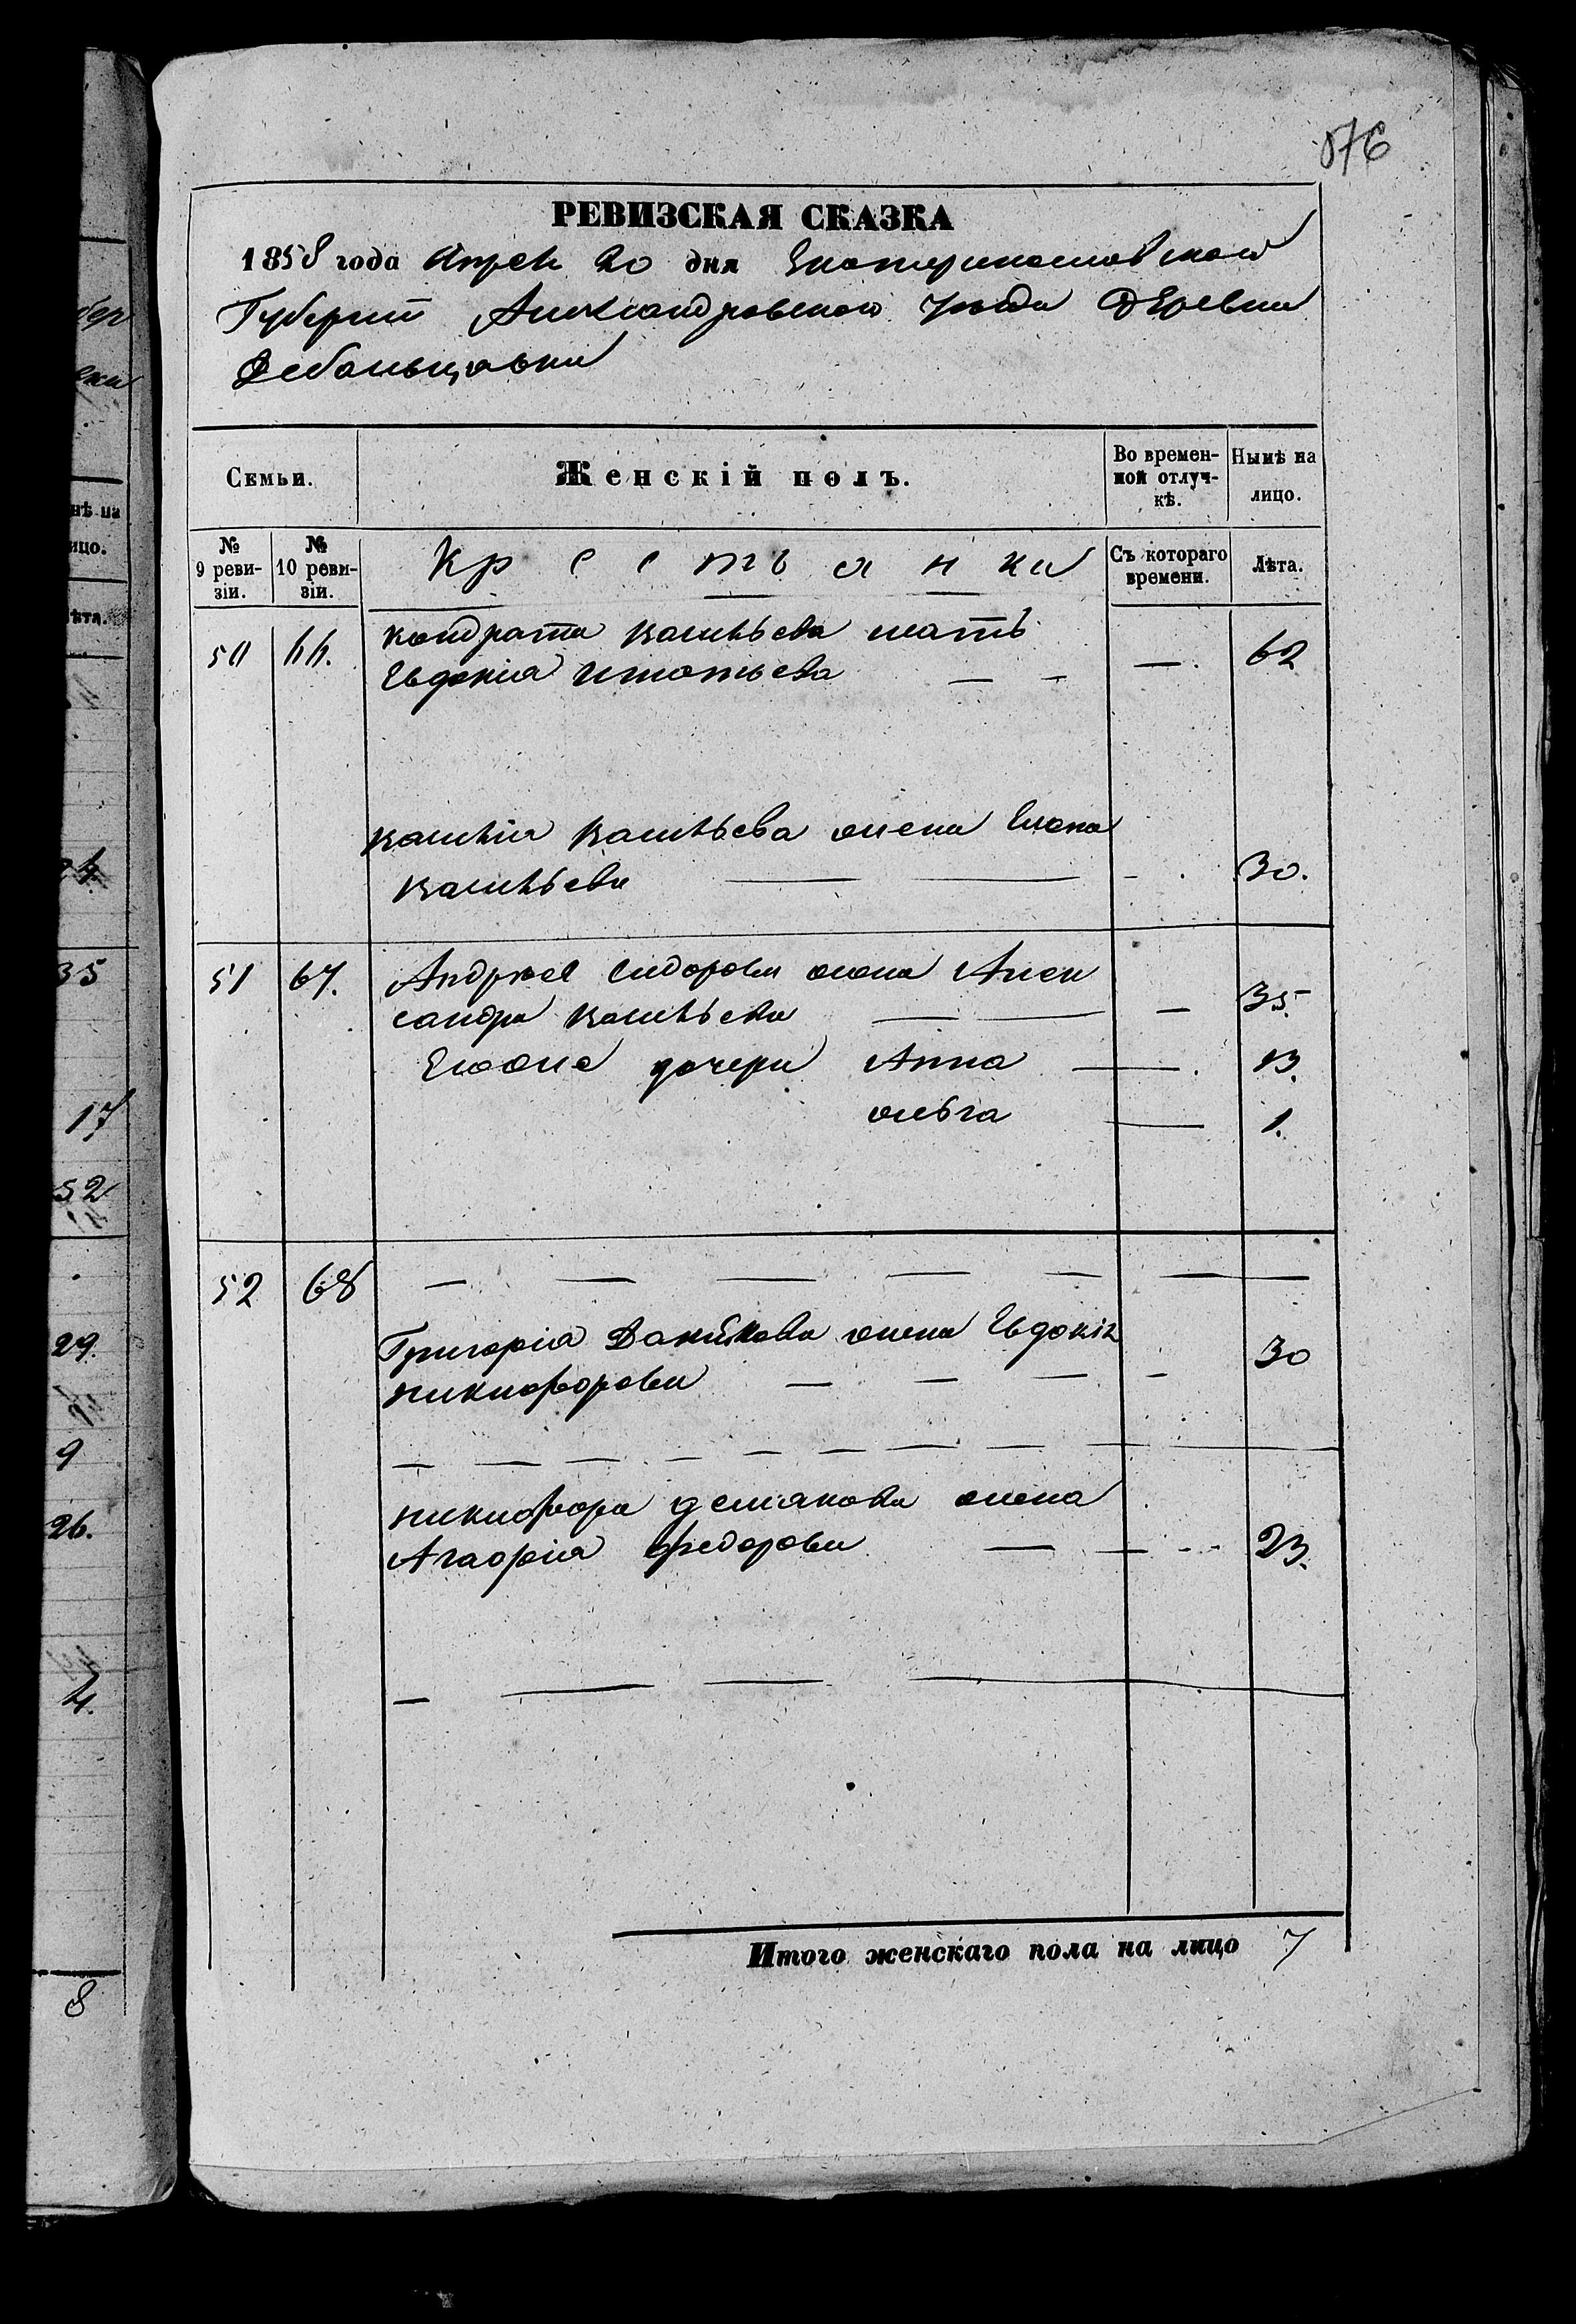 576
РЕВИЗСКАЯ СКАЗКА
1858 года Апреля 20 дня Екатеринославской
Губернии Александровского Уезда Деревни
Семьи.
Женскій полъ.
Во времен-
ной отлуч-
кѣ.
Нынѣ на
лицо.
№
9 реви-
зіи.
№
10 реви-
зіи.
Кресьтьянки
Съ котораго
времени.
Лѣта.
50 66. кондрата мать
Евдокия 62
жена
30.
51 67. Андрея Сидорова жена Алек
сандра 35.
Егоже дочери Анна 13.
ольга 1.
52 68
Григорія жена Евдокія
никифорова 30
никифора демянова жена
Агафія федорова 23.
Итого женскаго пола на лицо 7
24
35
17
52
29.
9
26.
4.
8